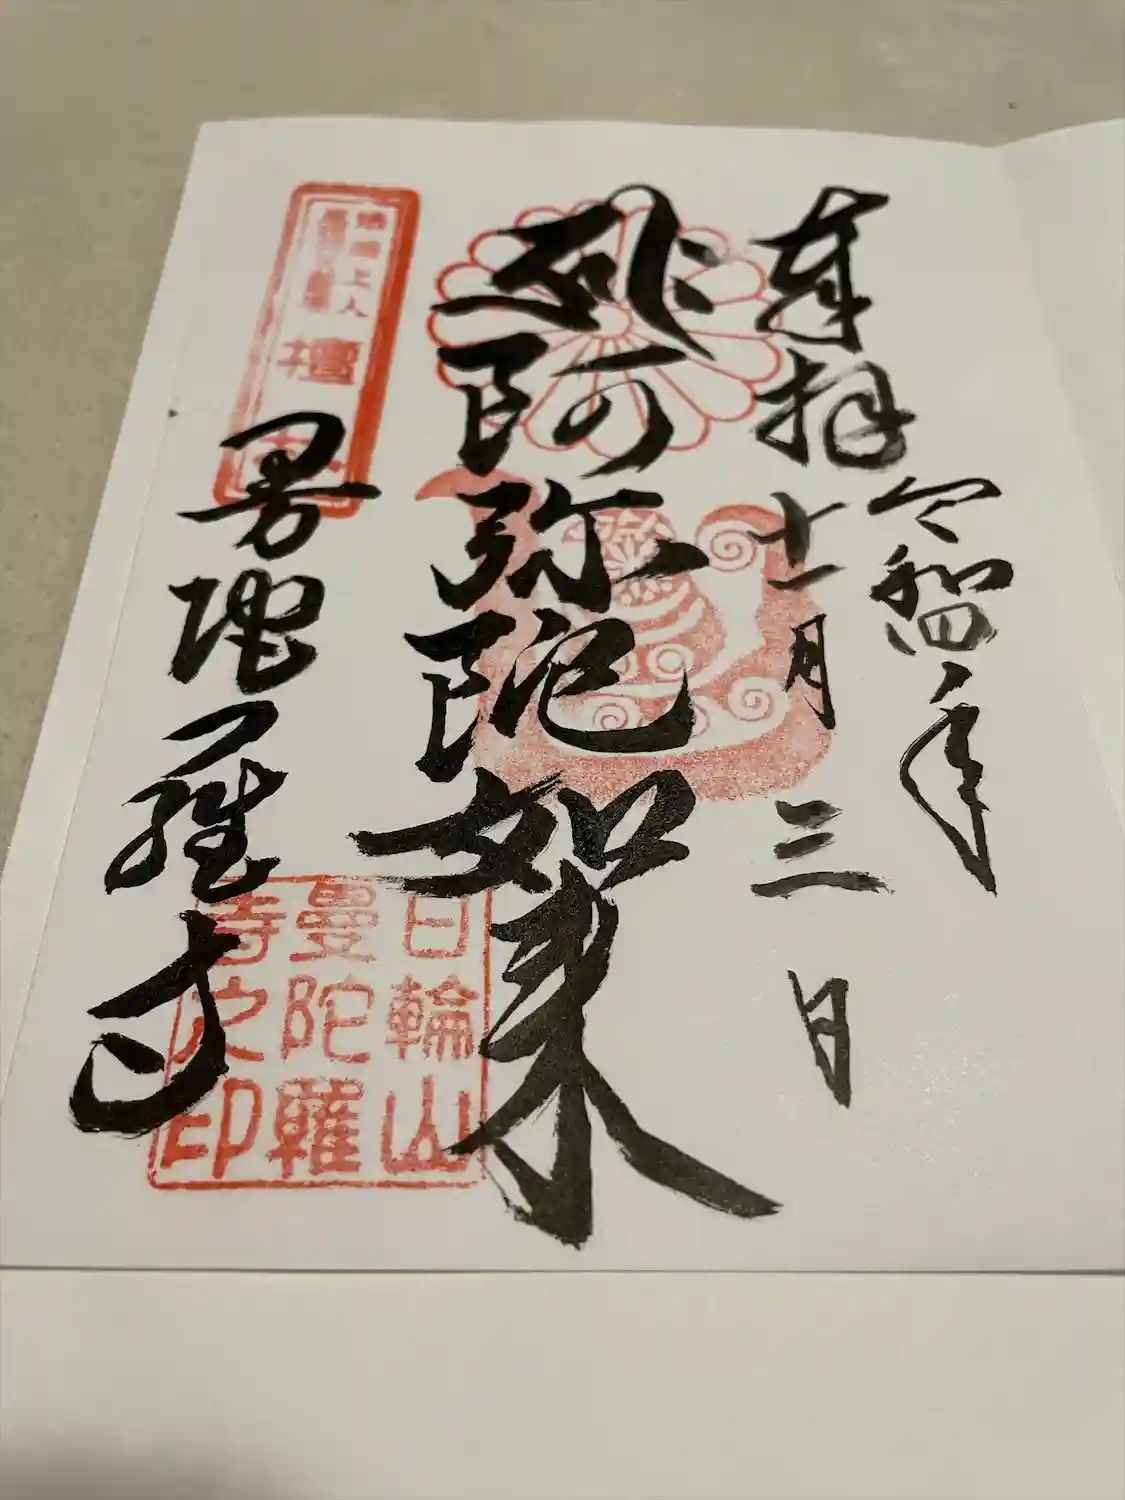 奉拝
令和四年
十一月三日
阿弥陀如来
曼陀羅寺
上人
檀
日輪山
曼陀羅
寺之印